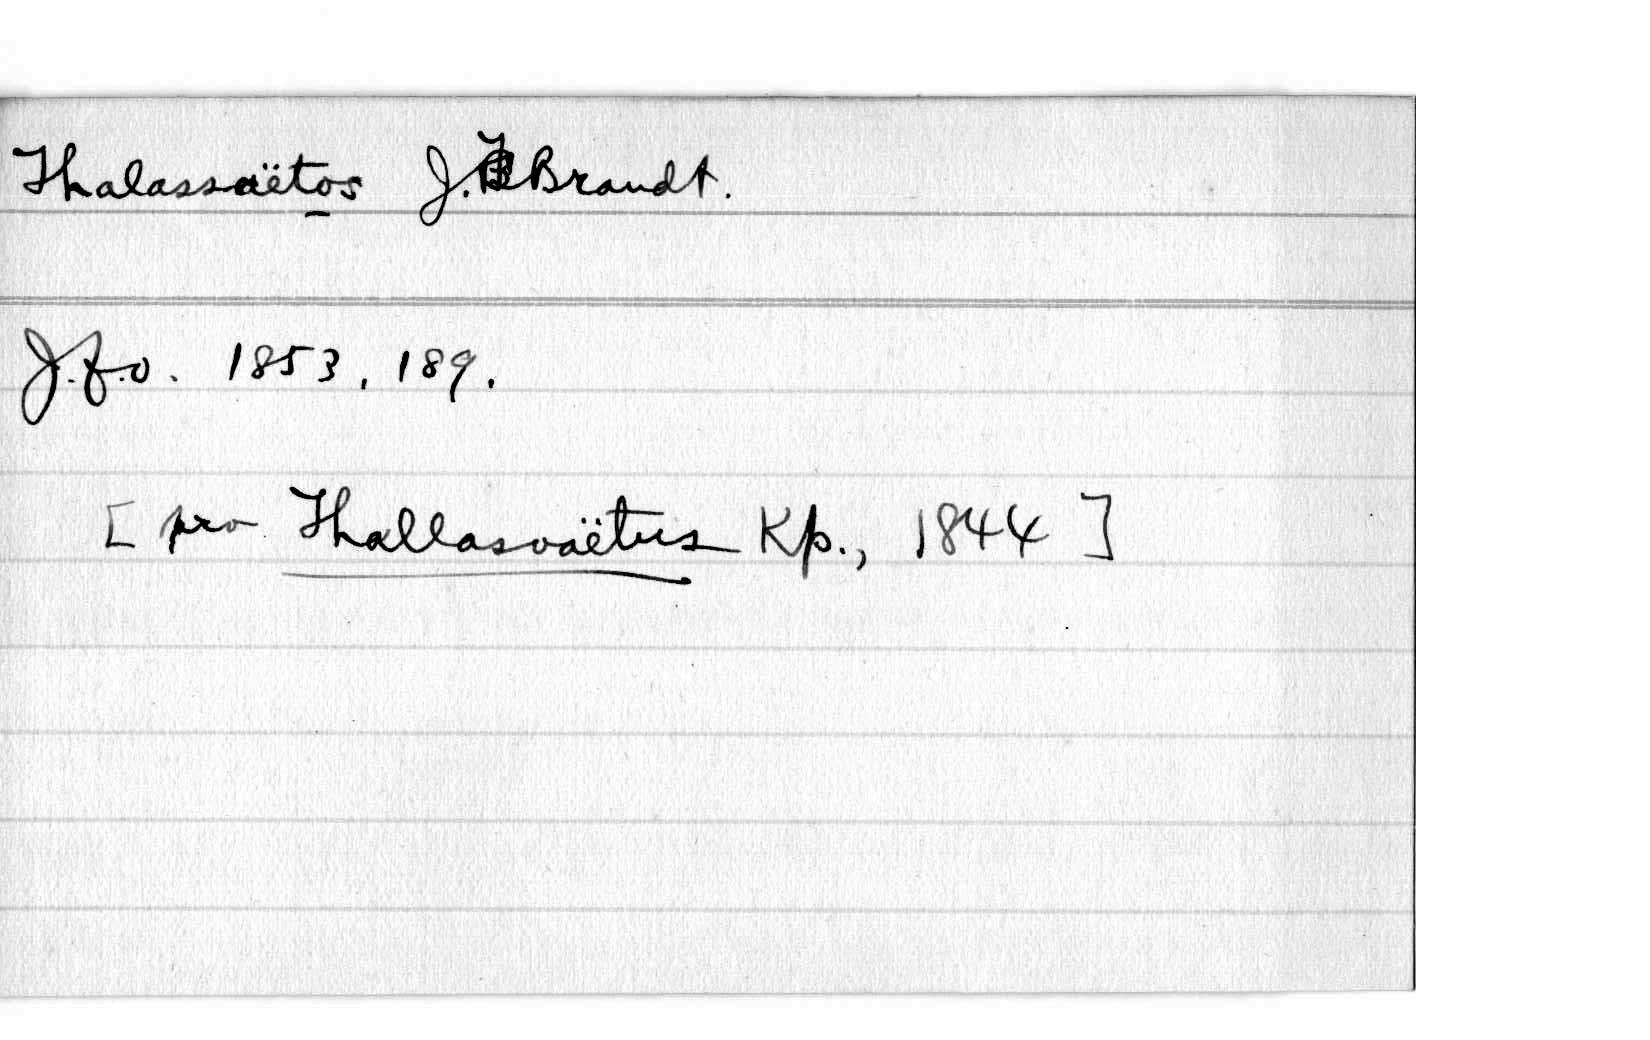 Thalassaëtos J.F. Brandt.
J.f.O. 1853, 189.
[ pro Thallasoaëtus Kp., 1844 ]